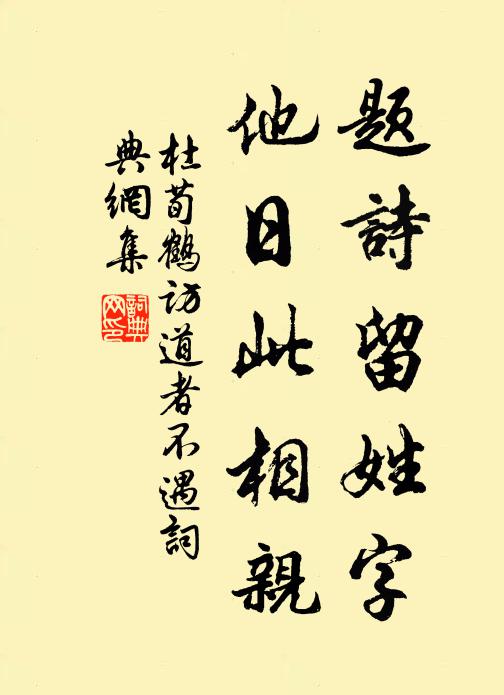 題詩留姓字
他日此相親
杜荀鶴訪道者不遇詞
典網集
詞典
网印